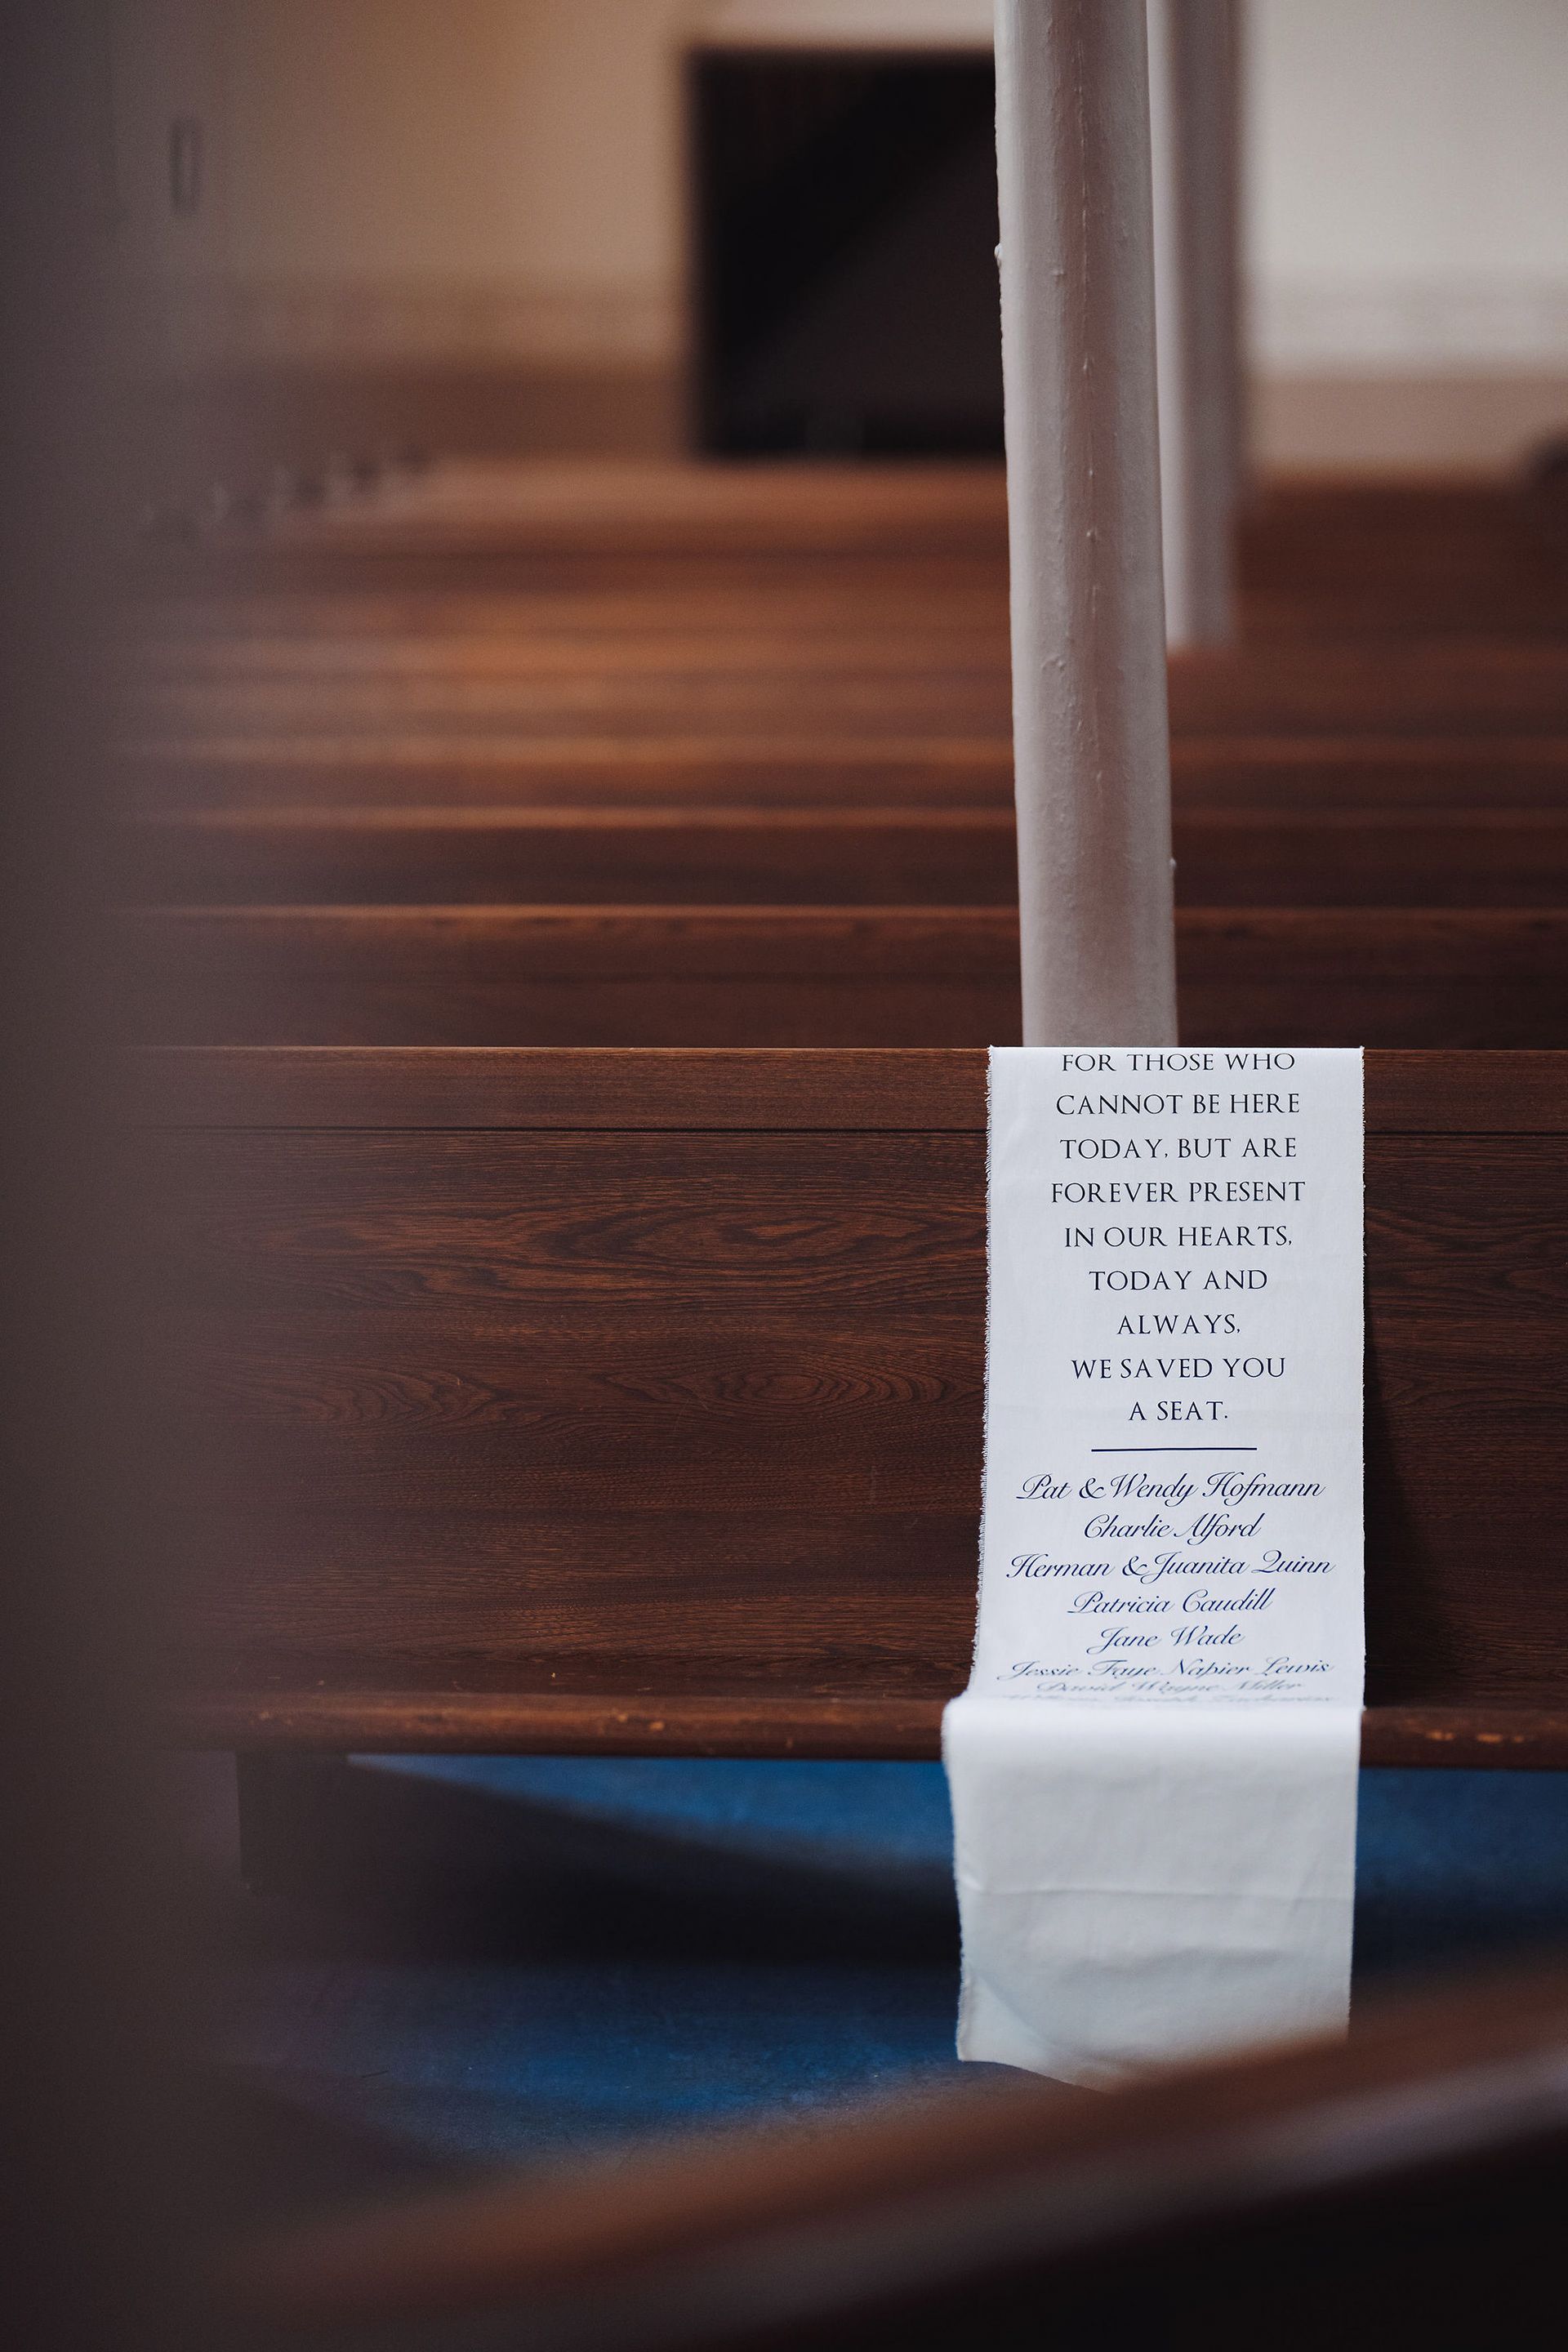 FOR THOSE WHO
CANNOT BE HERE
TODAY, BUT ARE
FOREVER PRESENT
IN OUR HEARTS,
TODAY AND
ALWAYS,
WE SAVED YOU
A SEAT.
Pat & Wendy Hofmann
Charlie Alford
Herman & Juanita Quinn
Patricia Caudill
Jane Wade
Jessie Faye Napier Lewis
David Wayne Miller